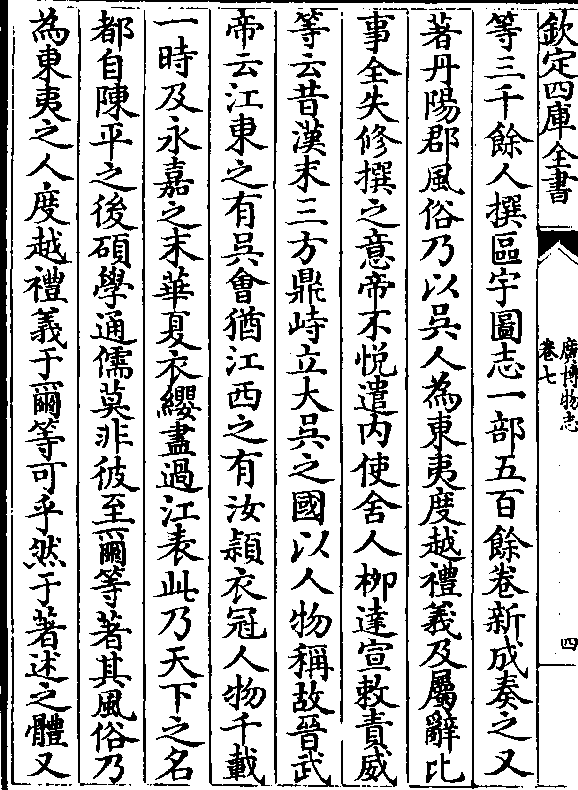 欽定四庫全書
廣博物志
卷七
四
等三千餘人撰區宇圖志一部五百餘卷新成奏之又
著丹陽郡風俗乃以吳人為東夷度越禮義及屬辭比
事全失修撰之意帝不悅遣内使舍人柳達宣敕責威
等云昔漢末三方鼎峙立大吳之國以人物稱故晉武
帝云江東之有吳會猶江西之有汝潁衣冠人物千載
一時及永嘉之末華夏衣纓盡過江表此乃天下之名
都自陳平之後碩學通儒莫非彼至爾等著其風俗乃
為東夷之人度越禮義于爾等可乎然于著述之體又